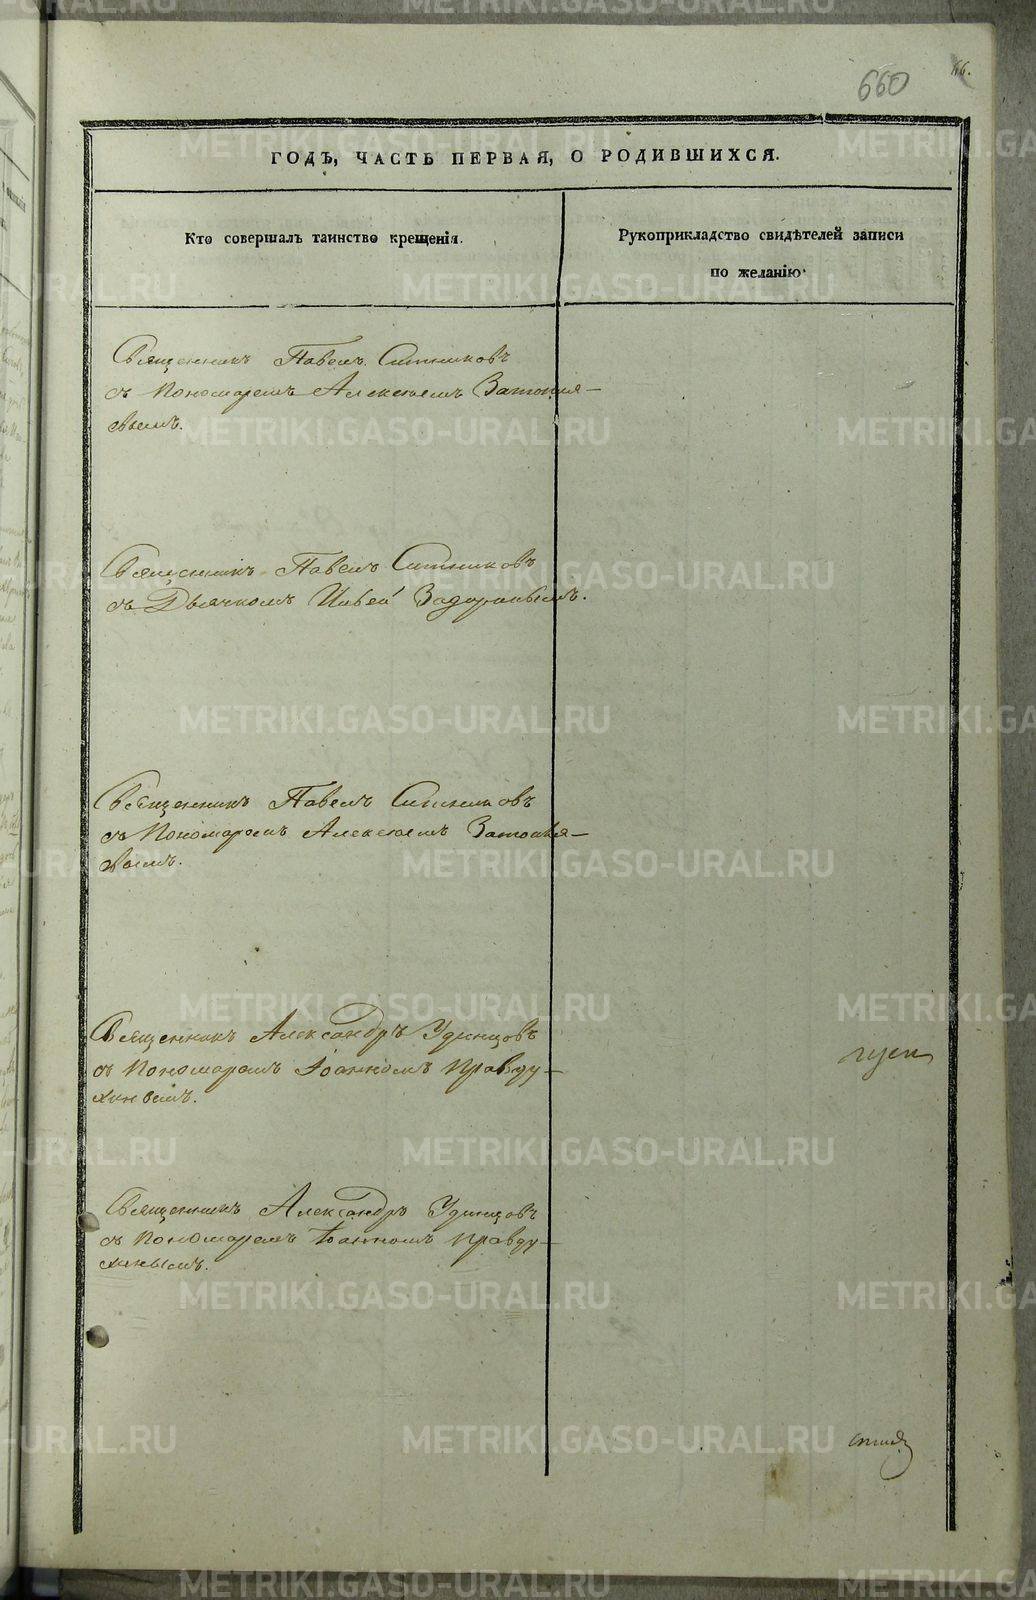 660
66.
ГОДЪ, ЧАСТЬ ПЕРВАЯ, О РОДИВШИХСЯ.
Кто совершалъ таинство крещенія.
Рукоприкладство свидѣтелей записи
по желанію.
Священникъ Павелъ Ситниковъ
съ Пономаремъ Алексѣемъ Затопля-
евымъ.
Священникъ Павелъ Ситниковъ
съ Дьячкомъ Ильей Задоринымъ.
Священникъ Павелъ Ситниковъ
съ Пономаремъ Алексѣемъ Затопля-
евымъ.
Священникъ Александръ Удинцовъ
съ Пономаремъ Іоанномъ Правду-
хинымъ.
Священникъ Александръ Удинцовъ
съ Пономаремъ Іоанномъ Правду-
хинымъ.
METRIKI.GASO-URAL.RU